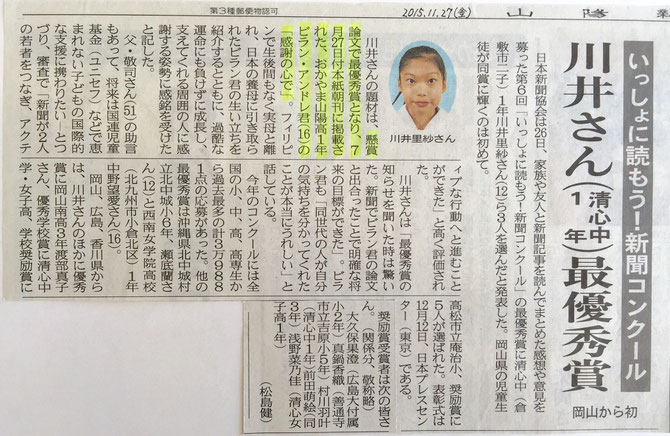 第3種郵便物認可
2015.11.27(金)
山陽
いっしょに読もう!新聞コンクール
川井さん(清心中1年)最優秀賞
岡山から初
日本新聞協会は26日、家族や友人と新聞記事を読んでまとめた感想や意見を
募った第6回「いっしょに読もう!新聞コンクール」の最優秀賞に清心中(倉
敷市二子)1年川井里紗さん(12)ら3人を選んだと発表した。岡山県の児童生
徒が同賞に輝くのは初めて。
川井里紗さん
川井さんの題材は、懸賞
論文で最優秀賞となり、7
月27日付本紙朝刊に掲載さ
れた、おかやま山陽高1年
ビラン・アンドレ君(16)の
「感謝の心で」。フィリピ
ンで生後間もなく実母と離
れ、日本の養母に引き取ら
れたビラン君の生い立ちを
紹介するとともに、過酷な
運命にも負けずに成長し、
支えてくれる周囲の人に感
謝する姿勢に感銘を受けた
と記した。
父・敬司さん(51)の助言
もあって、将来は国連児童
基金(ユニセフ)などで恵
まれない子どもの国際的
な支援に携わりたい」とつ
づり、審査で「新聞が2人
の若者をつなぎ、アクテ
ィブな行動へと進むこと
ができた」と高く評価され
た。
川井さんは「最優秀賞の
知らせを聞いた時は驚い
た。新聞でビラン君の論文
と出合ったことで明確な将
来の目標ができた」。ビラ
ン君も「同世代の人が自分
の気持ちを分かってくれた
ことが本当にうれしい」と
話している。
今年のコンクールには全
国の小、中、高、高専生か
ら過去最多の計3万988
1点の応募があった。他の
最優秀賞は沖縄県北中城村
立北中城小6年、瀬底蘭さ
ん(12)と西南女学院高校
(北九州市小倉北区)1年
中野望愛さん(16)。
岡山、広島、香川県から
は、川井さんのほかに優秀
賞に岡山南高3年度部真子
さん、優秀学校賞に清心中
学・女子高、学校奨励賞に
高松市立庵治小、奨励賞に
5人が選ばれた。表彰式は
12月12日、日本プレスセン
ター(東京)である。
奨励賞受賞者は次の皆さ
ん。(関係分、敬称略)
大久保果澄(広島大付属
小2年)真鍋香織(善通寺
市立吉原小5年)村川羽叶
(清心中1年)前田萌絵(同
3年)浅野菜乃佳(清心女
子高1年)
(松島健)